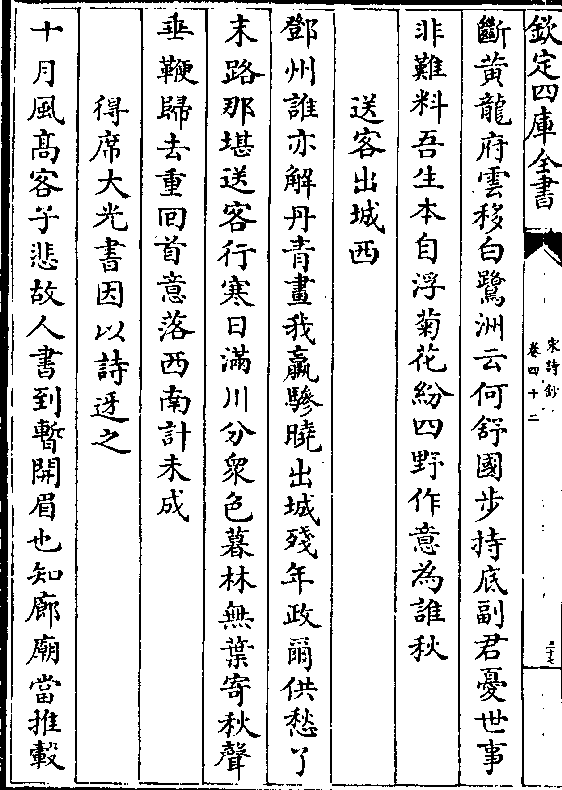 欽定四庫全書
宋詩鈔
卷四十二
三十七
斷黃龍府雲移白鷺洲云何舒國步持底副君憂世事
非難料吾生本自浮菊花紛四野作意為誰秋
送客出城西
鄧州誰亦解丹青畫我羸驂曉出城殘年政爾供愁了
末路那堪送客行寒日滿川分衆色暮林無葉寄秋聲
垂鞭歸去重回首意落西南計未成
得席大光書因以詩迓之
十月風高客子悲故人書到暫開眉也知廊廟當推轂